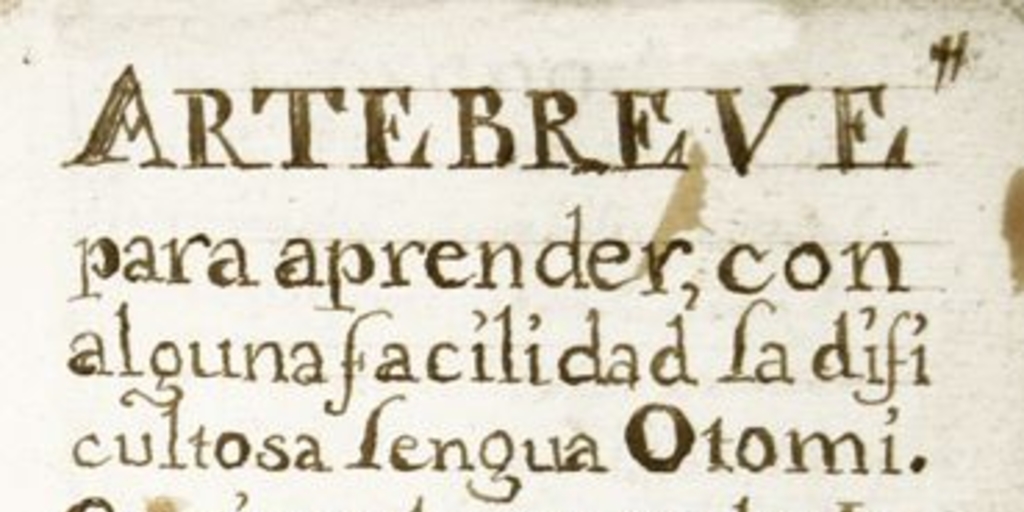 ARTE BREVE
para aprender, con
alguna facilidad la difi
cultosa lengua Otomi.